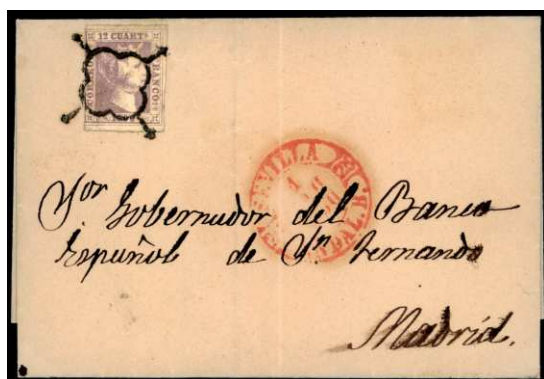 12 CUARTS
CORREOS FRANCO
SEVILLA
1
Sor Gobernador del Banco
Español de Sn Fernando
Madrid.